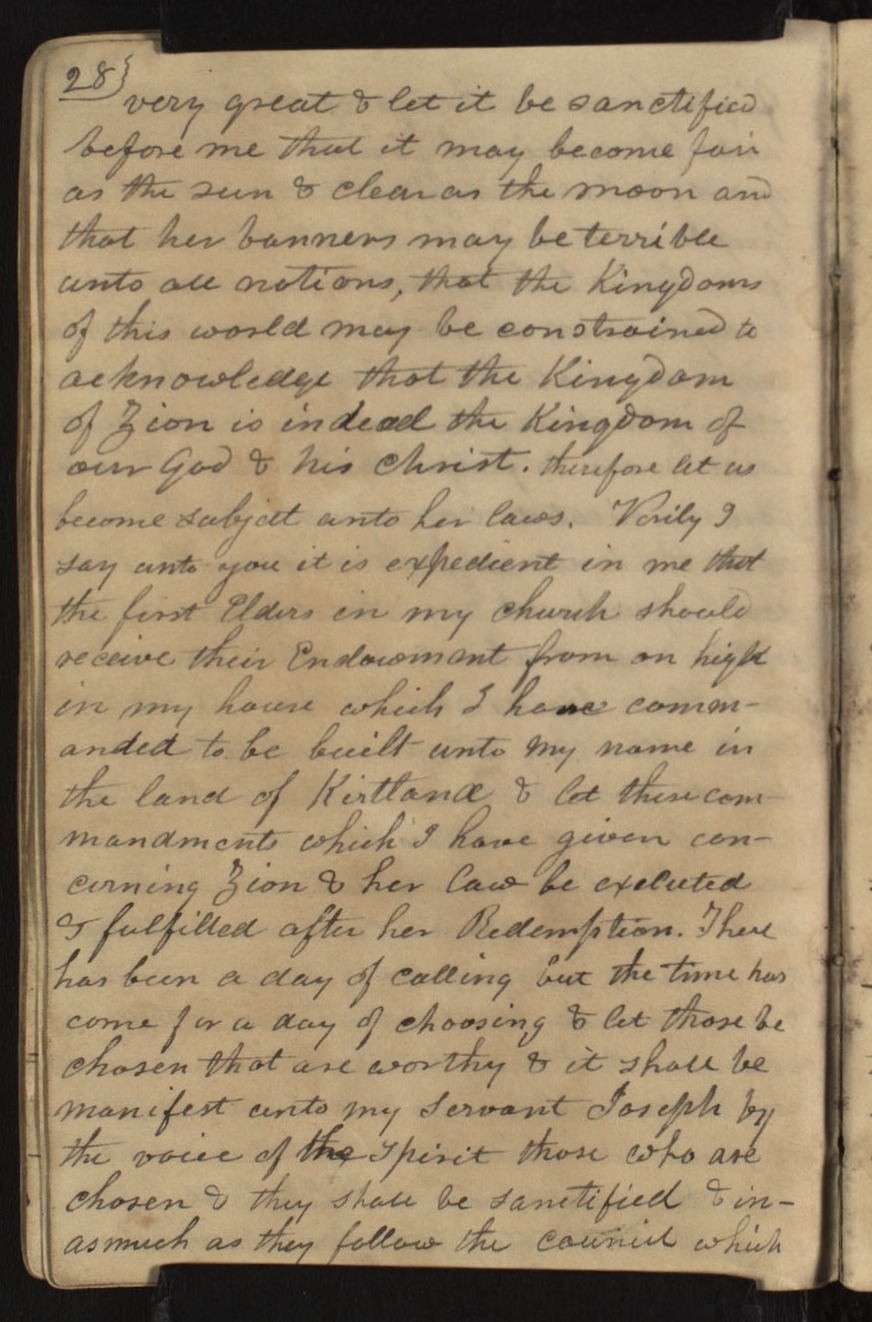 28}
very great & let it be sanctified
before me that it may become fair
as the sun & clear as the moon and
that her banners may be terrible
unto all nations, that the Kingdoms
of this world may be constrained to
acknowledge that the Kingdom
of Zion is indead the Kingdom of
our God & his Christ. therefore let us
become subject unto her laws. Verily I
say unto you it is expedient in me that
the first Elders in my church should
receive their Endowment from on high
in my house which I have comm-
anded to be built unto my name in
the land of Kirtland & let these com-
mandments which I have given con-
cerning Zion & her law be executed
& fulfilled after her Redemption. There
has been a day of calling but the time has
come for a day of choosing & let those be
chosen that are worthy & it shall be
manifest unto my Servant Joseph by
the voice of the Spirit those who are
chosen & they shall be sanctified & in-
asmuch as they follow the council which